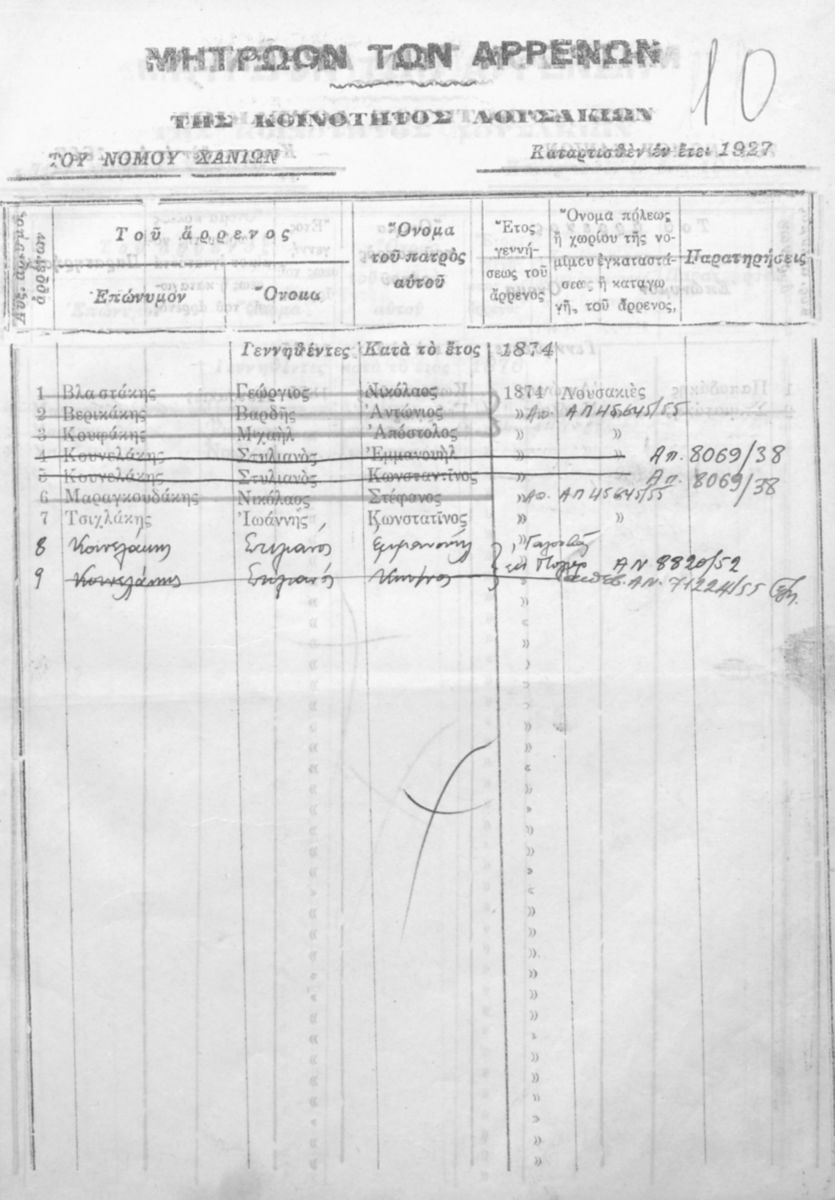 ΜΗΤΡΩΟΝ ΤΩΝ ΑΡΡΕΝΩΝ
10
ΤΗΣ ΚΟΙΝΟΤΗΤΟΣ ΛΟΥΣΑΚΙΩΝ
ΤΟΥ ΝΟΜΟΥ ΧΑΝΙΩΝ
Καταρτισθὲν ἐν ἔτει 1927
Αὔξ. ἀριθμὸς ἀρρένων
Τοῦ ἄρρενος
Ἐπώνυμον
Ὄνομα
Ὄνομα τοῦ πατρὸς αὐτοῦ
Ἔτος γεννήσεως τοῦ ἄρρενος
Ὄνομα πόλεως ἢ χωρίου τῆς νομίμου ἐγκαταστάσεως ἢ καταγωγῆς τοῦ ἄρρενος,
Παρατηρήσεις
Γεννηθέντες Κατὰ τὸ ἔτος 1874
1 Βλαστάκης Γεώργιος Νικόλαος 1874 Λουσακιὲς
2 Βερικάκης Βαρδῆς Ἀντώνιος » ΑΠ 45645/55
3 Κουφάκης Μιχαὴλ Ἀπόστολος » »
4 Κουνελάκης Στυλιανὸς Ἐμμανουὴλ » » Απ. 8069/38
5 Κουνελάκης Στυλιανὸς Κωνσταντῖνος » Απ. 8069/38
6 Μαραγκουδάκης Νικόλαος Στέφανος » ΑΠ 45645/55
7 Τσιχλάκης Ἰωάννής Κωνστατῖνος » »
8 Κουνελάκης Στυλιανός Εμμανουήλ »
9 Κουνελάκης Στυλιανός ΑΝ 8820/52
ΑΝ. 71224/55